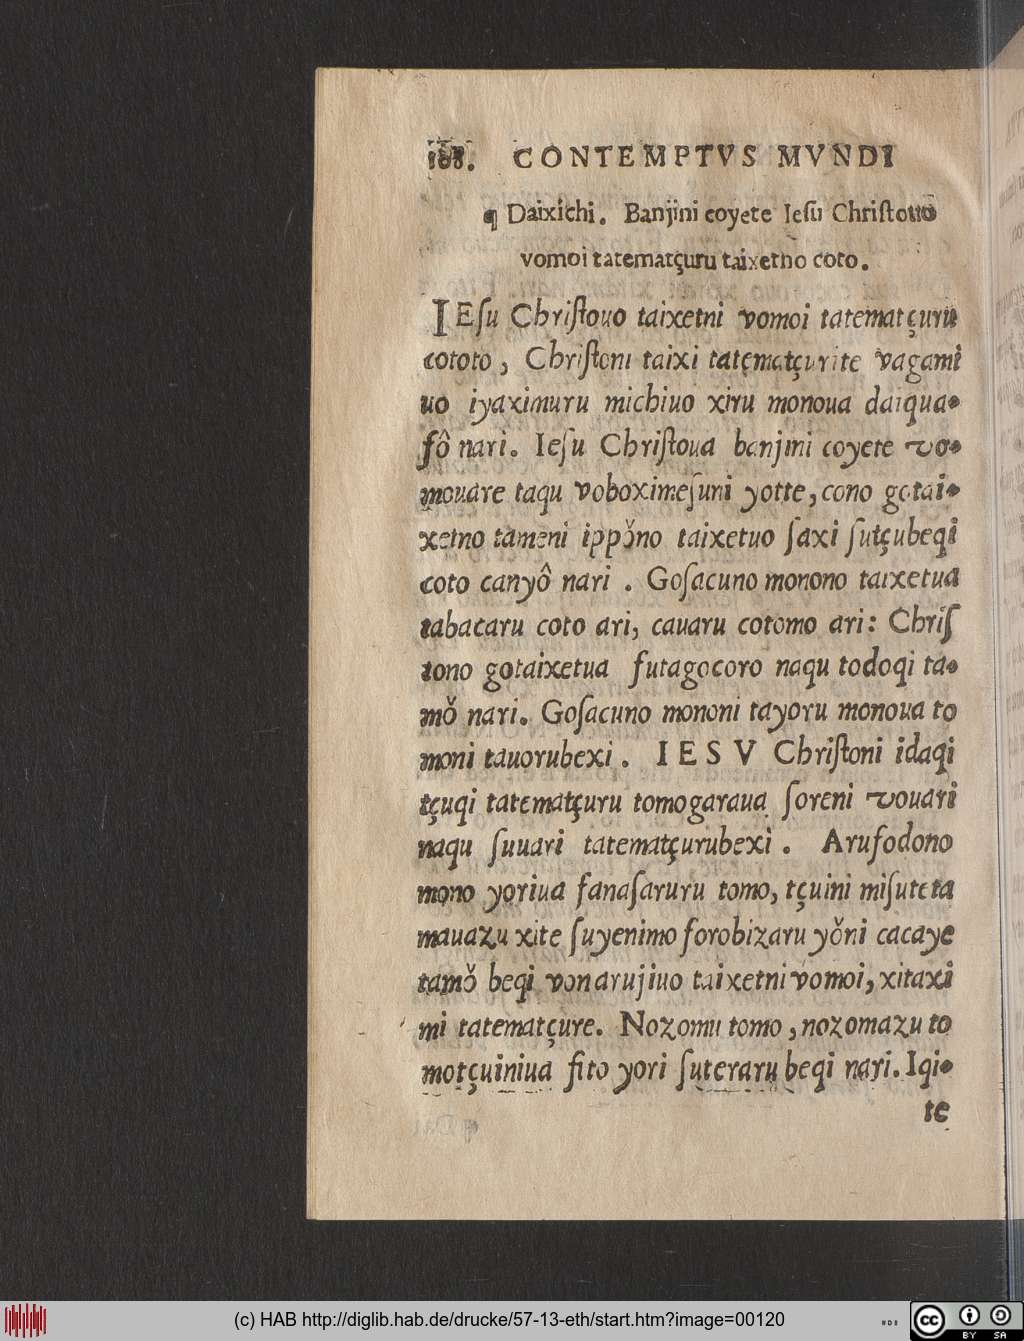 188. CONTEMPTVS MVNDI
¶ Daixichi. Banjini coyete Ieſu Chriſtouo
vomoi tatematçuru taixetno coto.
IEſu Chriſtouo taixetni vomoi tatematçuru
cototo, Chriſtoni taixi tatematçurite vagami
uo iyaximuru michiuo xiru monoua daiqua-
fô nari. Ieſu Chriſtoua banjini coyete vo-
mouare taqu voboximeſuni yotte, cono gotai-
xetno tameni ippǒno taixetuo ſaxi ſutçubeqi
coto canyô nari . Goſacuno monono taixetua
tabacaru coto ari, cauaru cotomo ari: Chriſ
tono gotaixetua futagocoro naqu todoqi ta-
mǒ nari. Goſacuno mononi tayoru monoua to
moni tauorubexi . IESV Chriſtoni idaqi
tçuqi tatematçuru tomogaraua ſoreni vouari
naqu ſuuari tatematçurubexi . Arufodono
mono yoriua fanaſaruru tomo, tçuini miſuteta
mauazu xite ſuyenimo forobizaru yǒni cacaye
tamǒ beqi vonarujiuo taixetni vomoi, xitaxi
mi tatematçure. Nozomu tomo, nozomazu to
motçuiniua fito yori ſuteraru beqi nari. Iqi-
te
(c) HAB http://diglib.hab.de/drucke/57-13-eth/start.htm?image=00120
cc BY SA